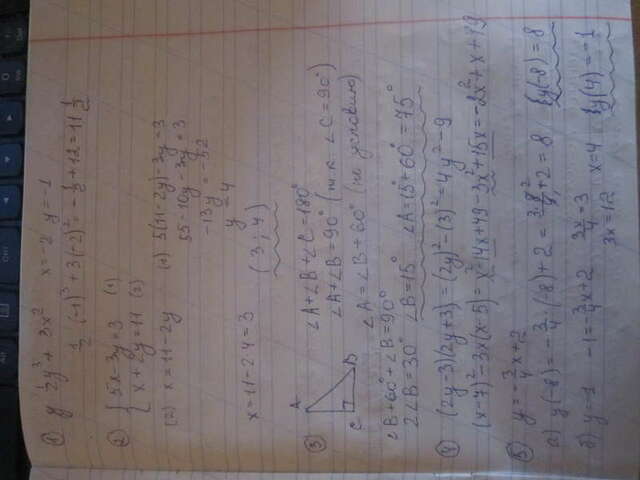 1 y 1/2 y³ + 3x² x=-2 y=-1
1/2 · (-1)³ + 3(-2)² = -1/2 + 12 = 11 1/2
2 { 5x-3y=3 (1)
x+2y=11 (2)
(2) x=11-2y (1) 5(11-2y)-3y=3
55-10y-3y=3
-13y=-52
y=4
x=11-2·4=3 (3; 4)
3 A C B ∠A+∠B+∠C=180°
∠A+∠B=90° (т.к. ∠C=90°)
∠A=∠B+60° (по условию)
∠B+60°+∠B=90°
2∠B=30° ∠B=15° ∠A=15°+60°=75°
4 (2y-3)(2y+3)=(2y)²-(3)²=4y²-9
(x-7)²-3x(x-5)=x²-14x+49-3x²+15x=-2x²+x+49
5 y=-3/4 x+2
а) y(-8)=-3/4·(-8)+2=3·8/4+2=8 y(-8)=8
б) y=-1 -1=-3/4 x+2 3x/4=3 x=4 y(4)=-1
3x=12